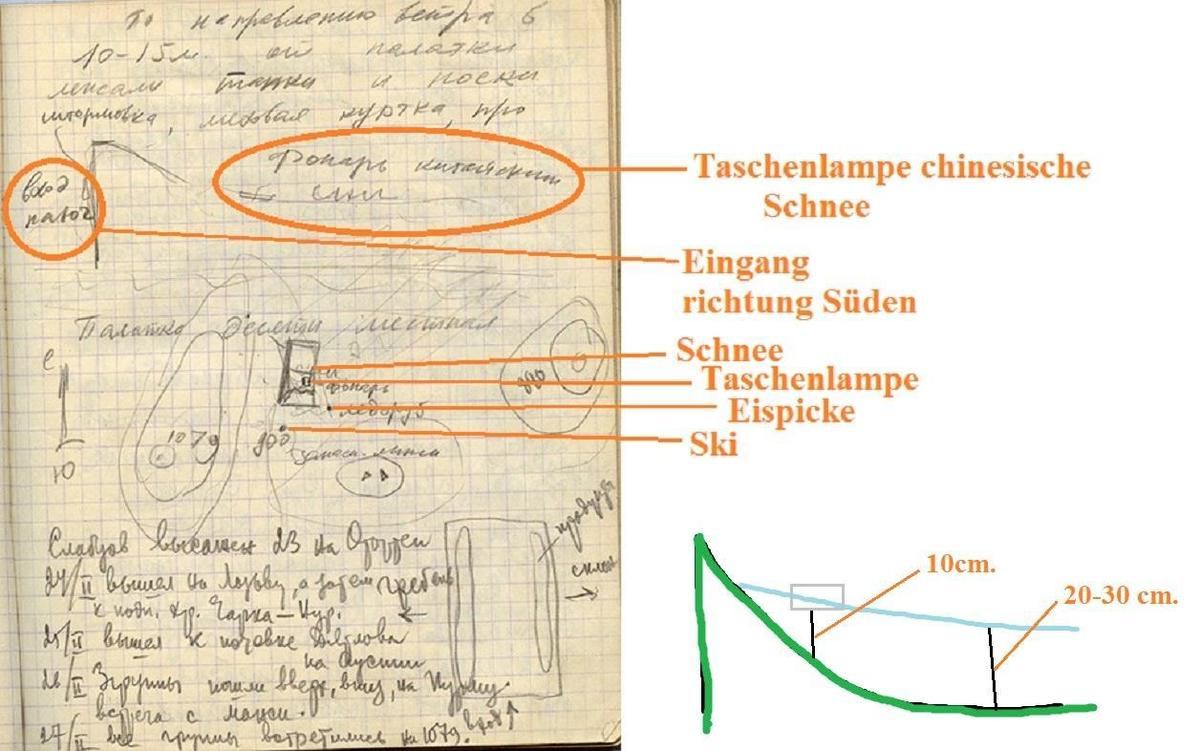 По направлению ветра в
10-15 м. от палатки
лежали тапки и носки
штормовка, меховая куртка, про
фонарь китайский
вход
палат
Палатка десяти местная
С
фонарь
ледоруб
1079
900
880
запасн. лыжи
Ю
Слобцов высажен 23 на Отортен
продукты
склон
24/II вышел на Лозьву, а затем гребень
25/II вышел к ночевке Дятлова
на Ауспии
26/II 3 группы пошли вверх, вниз, на
встреча с манси.
27/II все группы встретились на 1079.
вход
Taschenlampe chinesische
Schnee
Eingang
richtung Süden
Schnee
Taschenlampe
Eispicke
Ski
10cm.
20-30 cm.